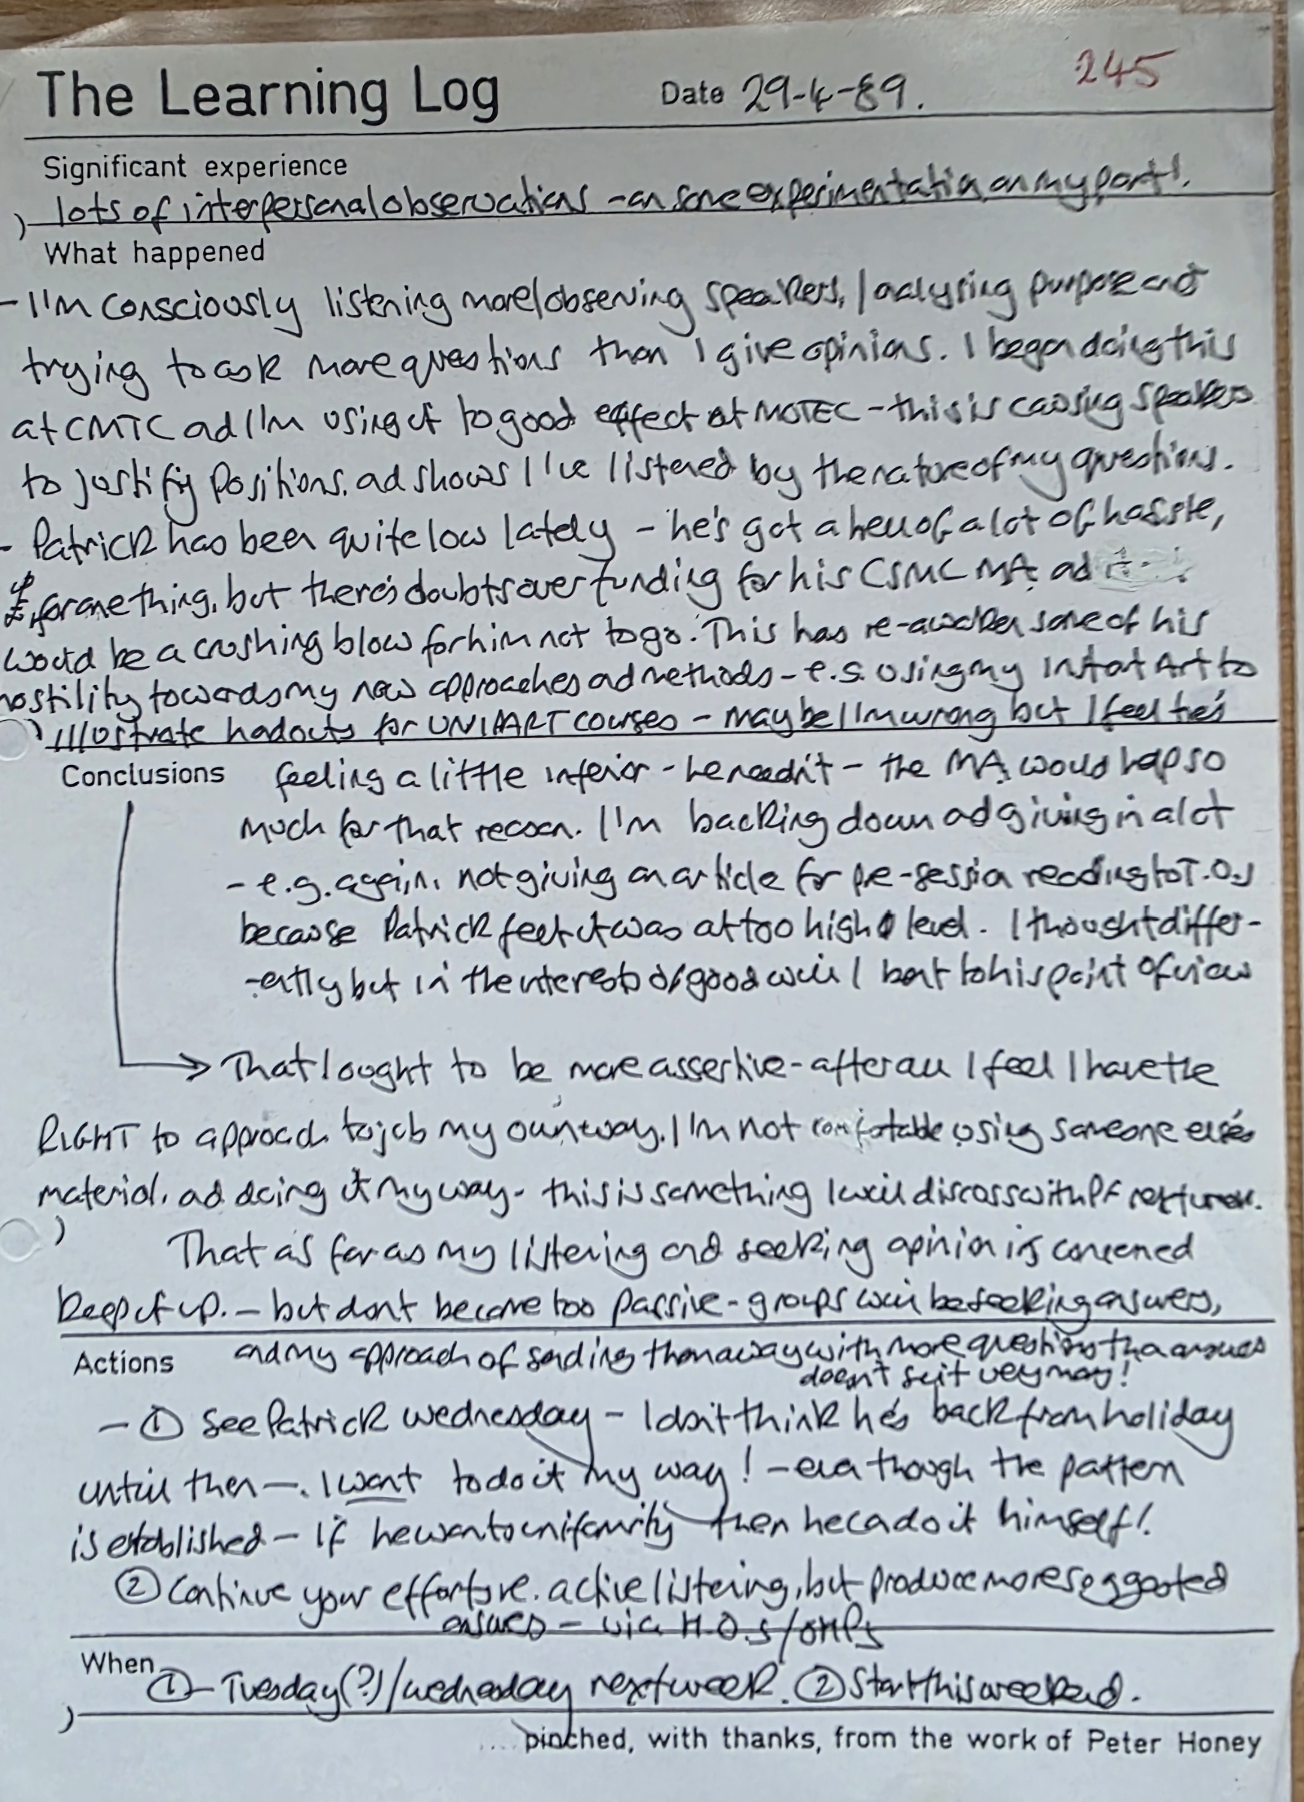 The Learning Log Date 29-4-89. 245
Significant experience
lots of interpersonal observations - an some experimentation on my part!.
What happened
- I'm consciously listening more/observing speakers, /analysing purpose and
trying to ask more questions than I give opinions. I began doing this
at CMTC and I'm using it to good effect at MOTEC - this is causing speakers
to justify positions, and shows I've listened by the nature of my questions.
- Patrick has been quite low lately - he's got a hell of a lot of hassle,
£, for one thing, but there's doubts over funding for his CSMC MA, and it
would be a crushing blow for him not to go. This has re-awoken some of his
hostility towards my new approaches and methods - e.g. using my Instant Art to
illustrate handouts for UNIPART courses - maybe I'm wrong but I feel he's
Conclusions feeling a little inferior - he needn't - the MA would help so
much for that reason. I'm backing down and giving in a lot
- e.g. again, not giving an article for pre-session reading to T.O.s
because Patrick felt it was at too high a level. I thought differ-
-ently but in the interests of good will I bent to his point of view
That I ought to be more assertive - after all I feel I have the
RIGHT to approach to job my own way. I'm not comfortable using someone else's
material, and doing it my way - this is something I will discuss with PF
That as far as my listening and seeking opinion is concerned
keep it up. - but don't become too passive - groups will be seeking answers,
Actions and my approach of sending them away with more questions than answers
doesn't suit very many!
- ① See Patrick Wednesday - I don't think he's back from holiday
until then -. I want to do it my way! - even though the pattern
is established - if he wants uniformity then he can do it himself!
② Continue your efforts re. active listening, but produce more suggested
answers - via H.O.s/OHPs
When ① - Tuesday(?)/Wednesday next week. ② Start this weekend.
....pinched, with thanks, from the work of Peter Honey